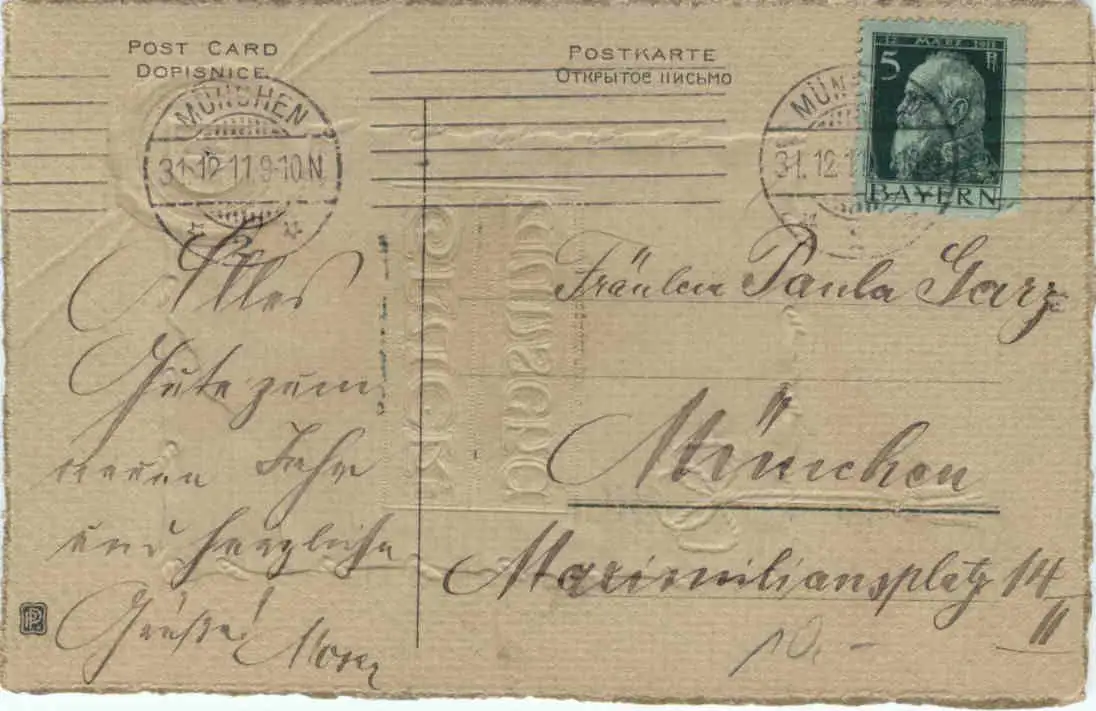 POST CARD
DOPISNICE
POSTKARTE
Открытое письмо
MÜNCHEN
31.12.11.9-10N
2
MÜN
31.12.11
12. MÄRZ 1911
5 Pf
BAYERN
Alles
Gute zum
neuen Jahr
und herzliche
Grüße!
Fräulein Paula Garz
München
Maximiliansplatz 14
II
10.-